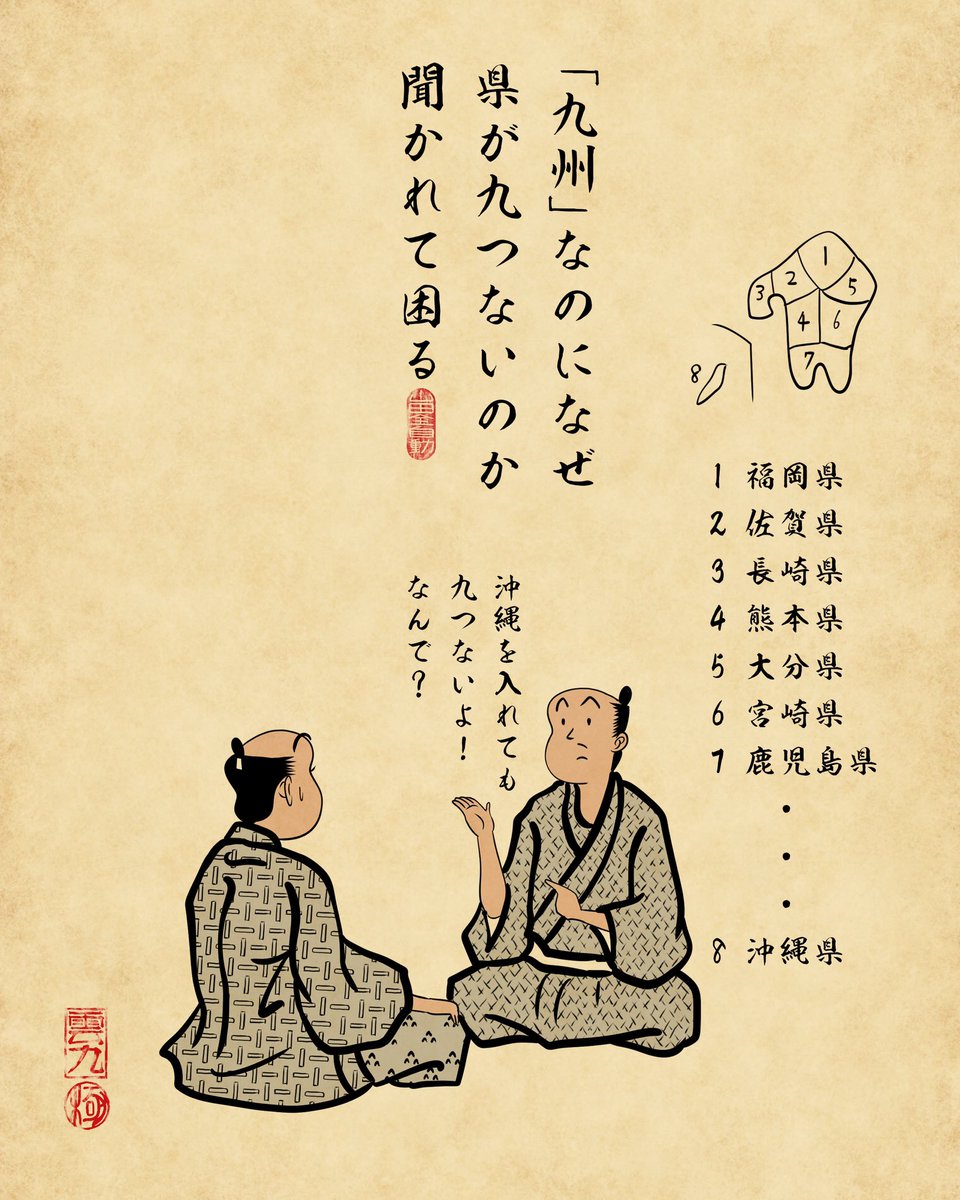 「九州」なのになぜ
県が九つないのか
聞かれて困る
1
2
3
4
5
6
7
8
1 福岡県
2 佐賀県
3 長崎県
4 熊本県
5 大分県
6 宮崎県
7 鹿児島県
・
・
・
8 沖縄県
沖縄を入れても
九つないよ！
なんで？